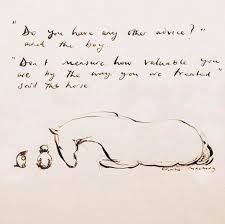 "Do you have any other advice?"
asked the boy
"Don't measure how valuable you
are by the way you are treated"
said the horse